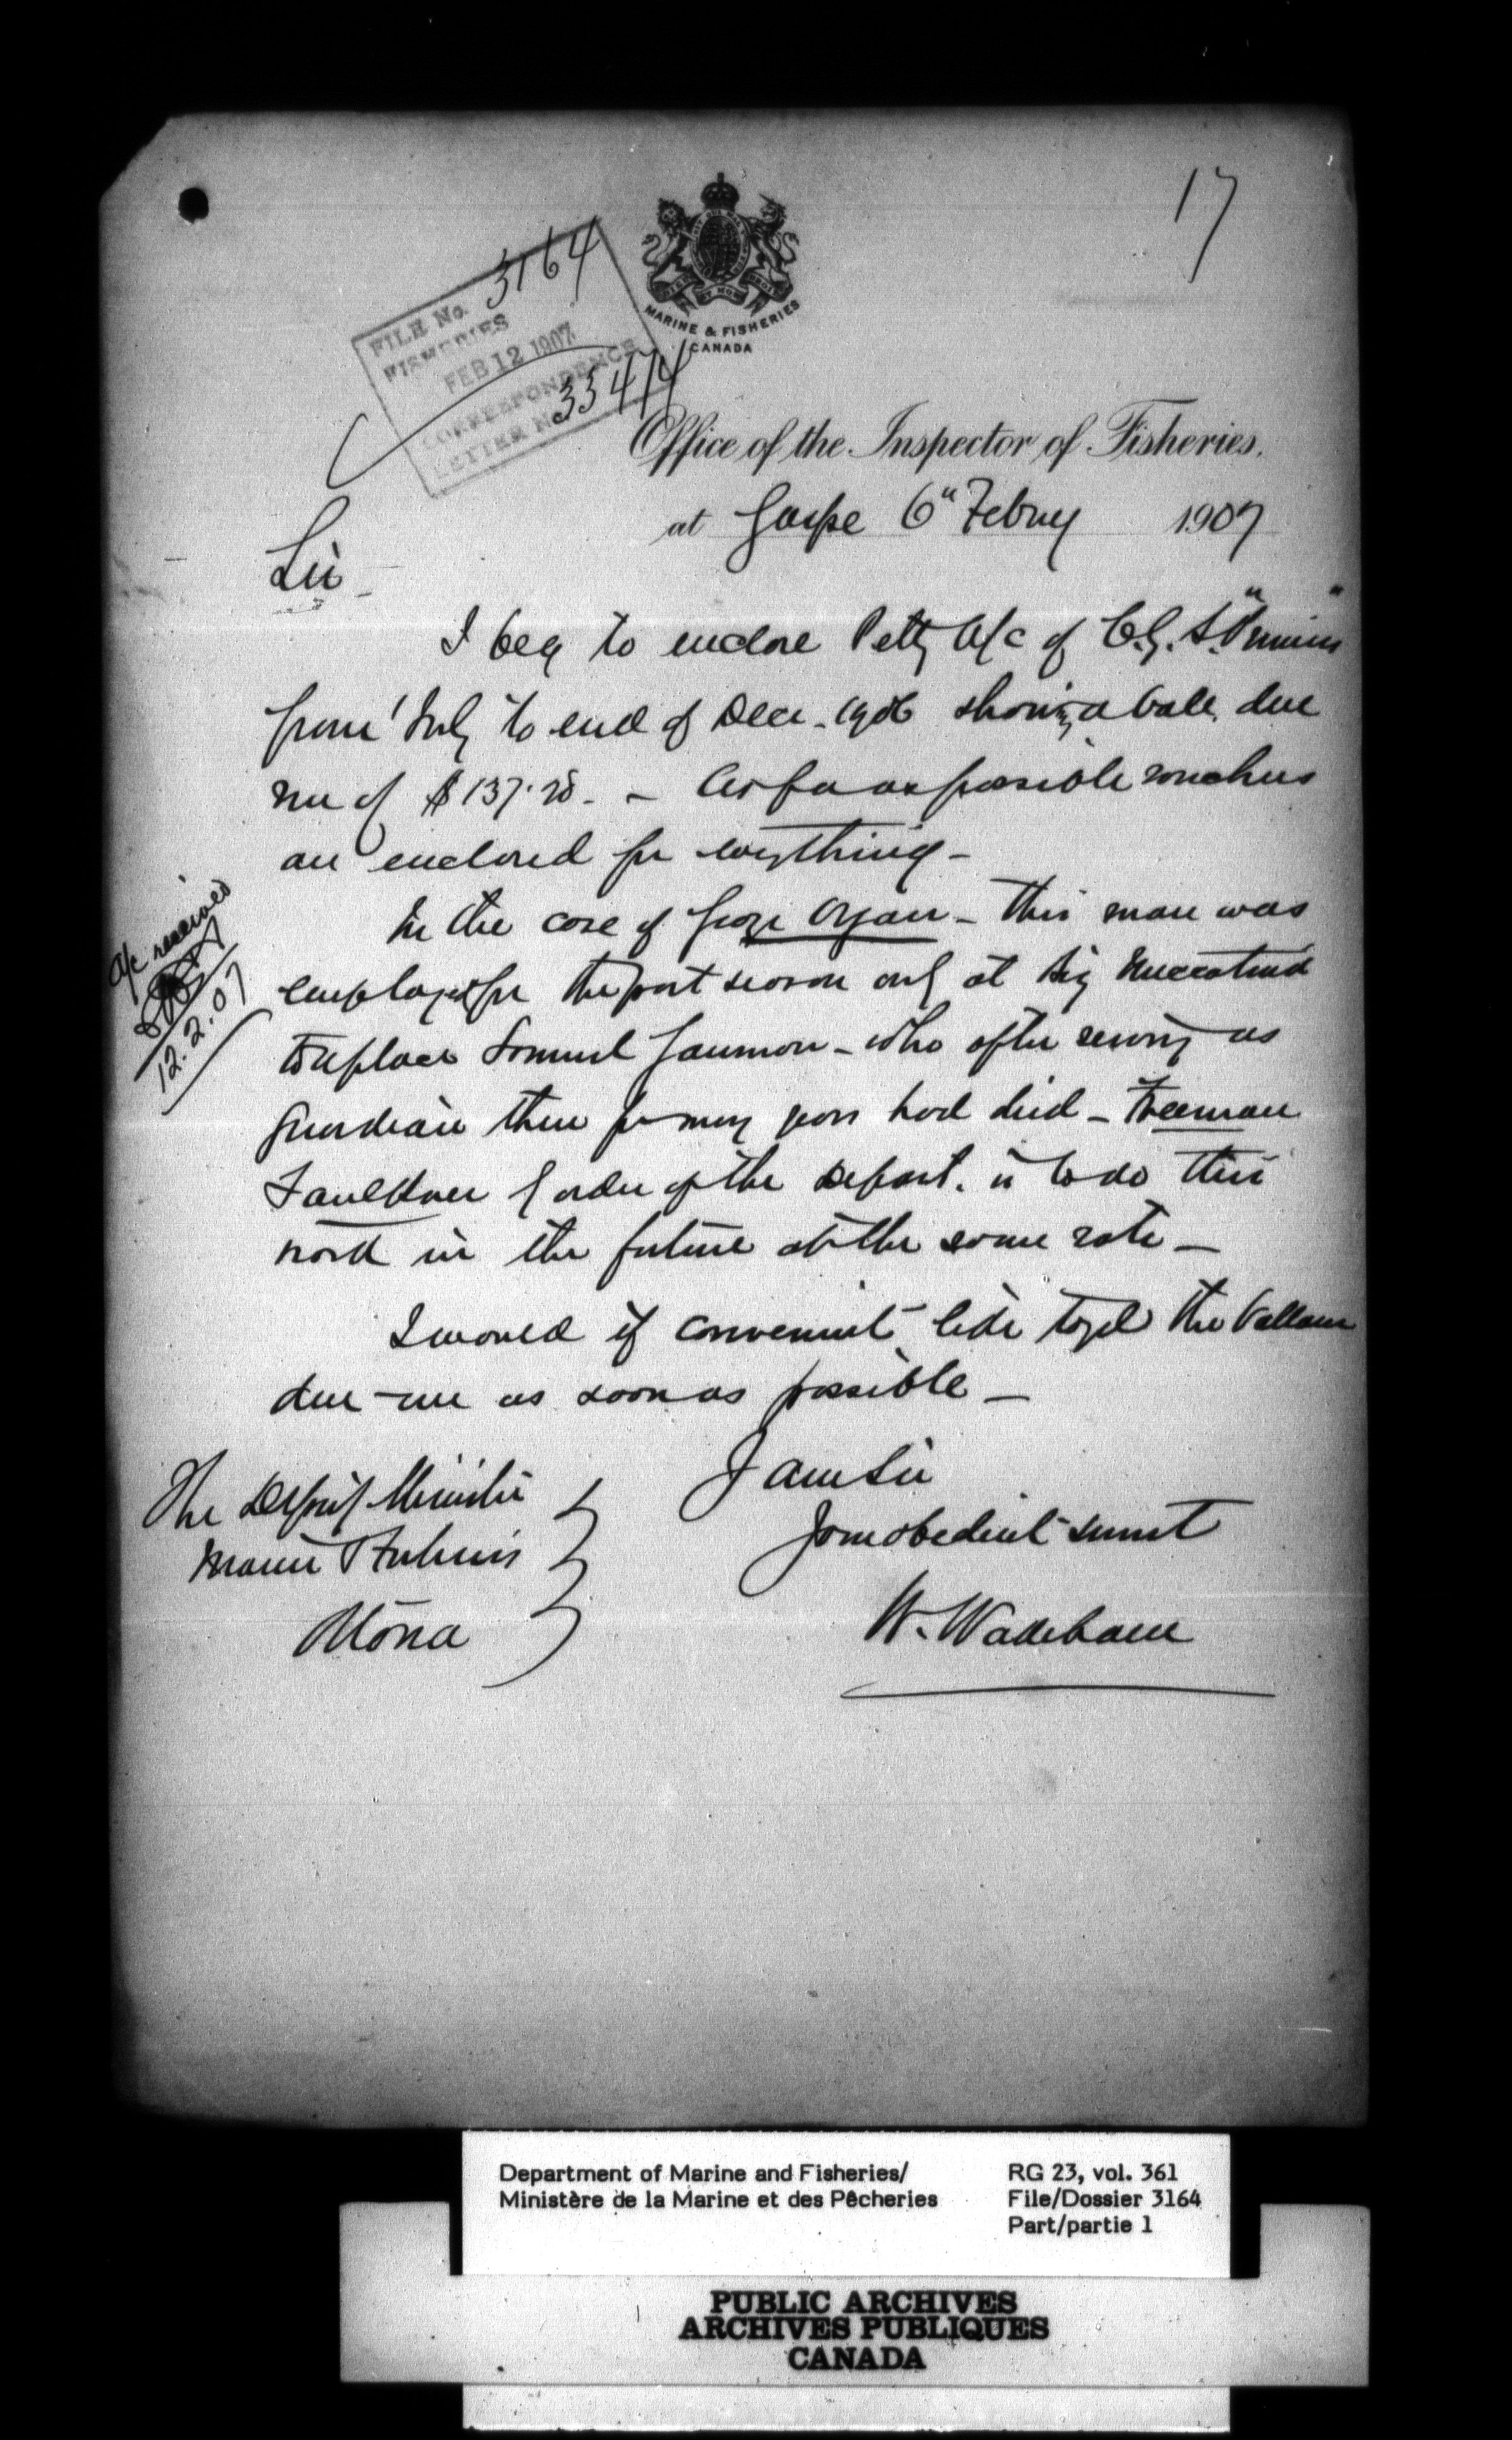 17
MARINE & FISHERIES
CANADA
FILE No. 3164
FISHERIES
FEB 12 1907
CORRESPONDENCE
LETTER No 33474
Office of the Inspector of Fisheries.
at Gaspe 6" Febry 1907
Sir
I beg to enclose Petty a/c of C.G.S.
from 1 July to end of Decr. 1906 showing a bale. due
me of $137.28. - As far as possible vouchers
are enclosed for everything -
In the case of George Organ - this man was
employed for the past season only at Big
to replace Samuel Gaumon - who after serving as
Guardian there for many years had died - Freeman
Faulkner by order of the Depart. is to do this
work in the future at the same rate -
I would if convenient like to get the ballance
due me as soon as possible -
I am Sir
Your obedient servant
W. Wakeham
The Deputy Minister
Marine & Fisheries
Ottawa
a/c received
12.2.07
Department of Marine and Fisheries/
Ministère de la Marine et des Pêcheries
RG 23, vol. 361
File/Dossier 3164
Part/partie 1
PUBLIC ARCHIVES
ARCHIVES PUBLIQUES
CANADA